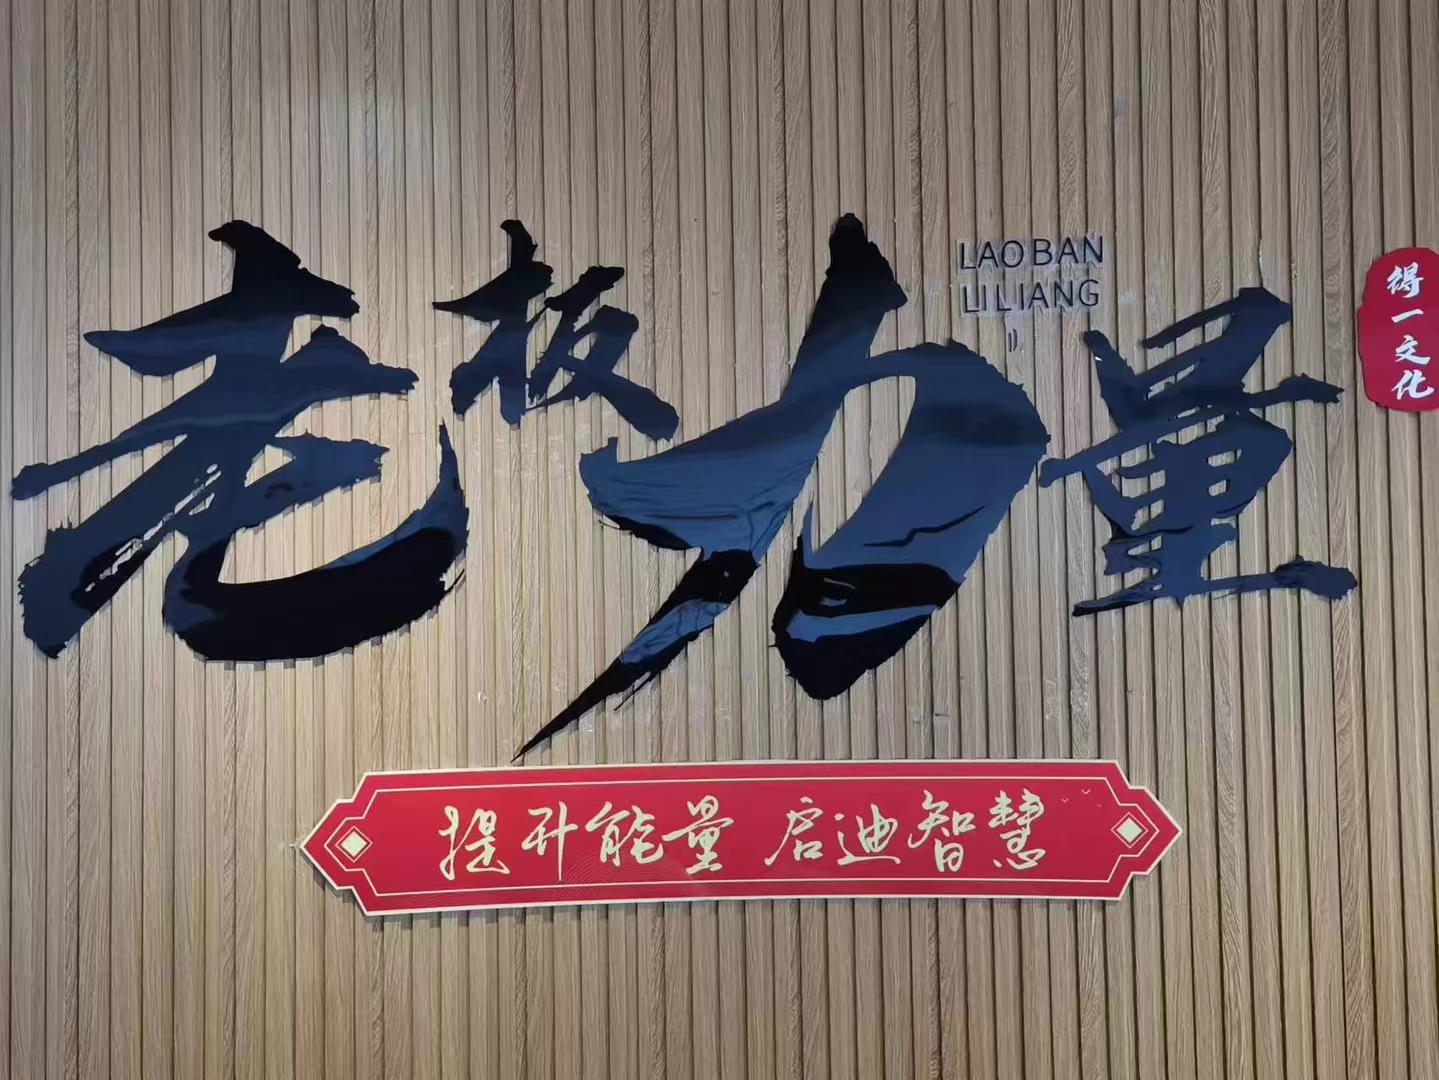 老板力量
LAO BAN
LI LIANG
得一文化
提升能量 启迪智慧